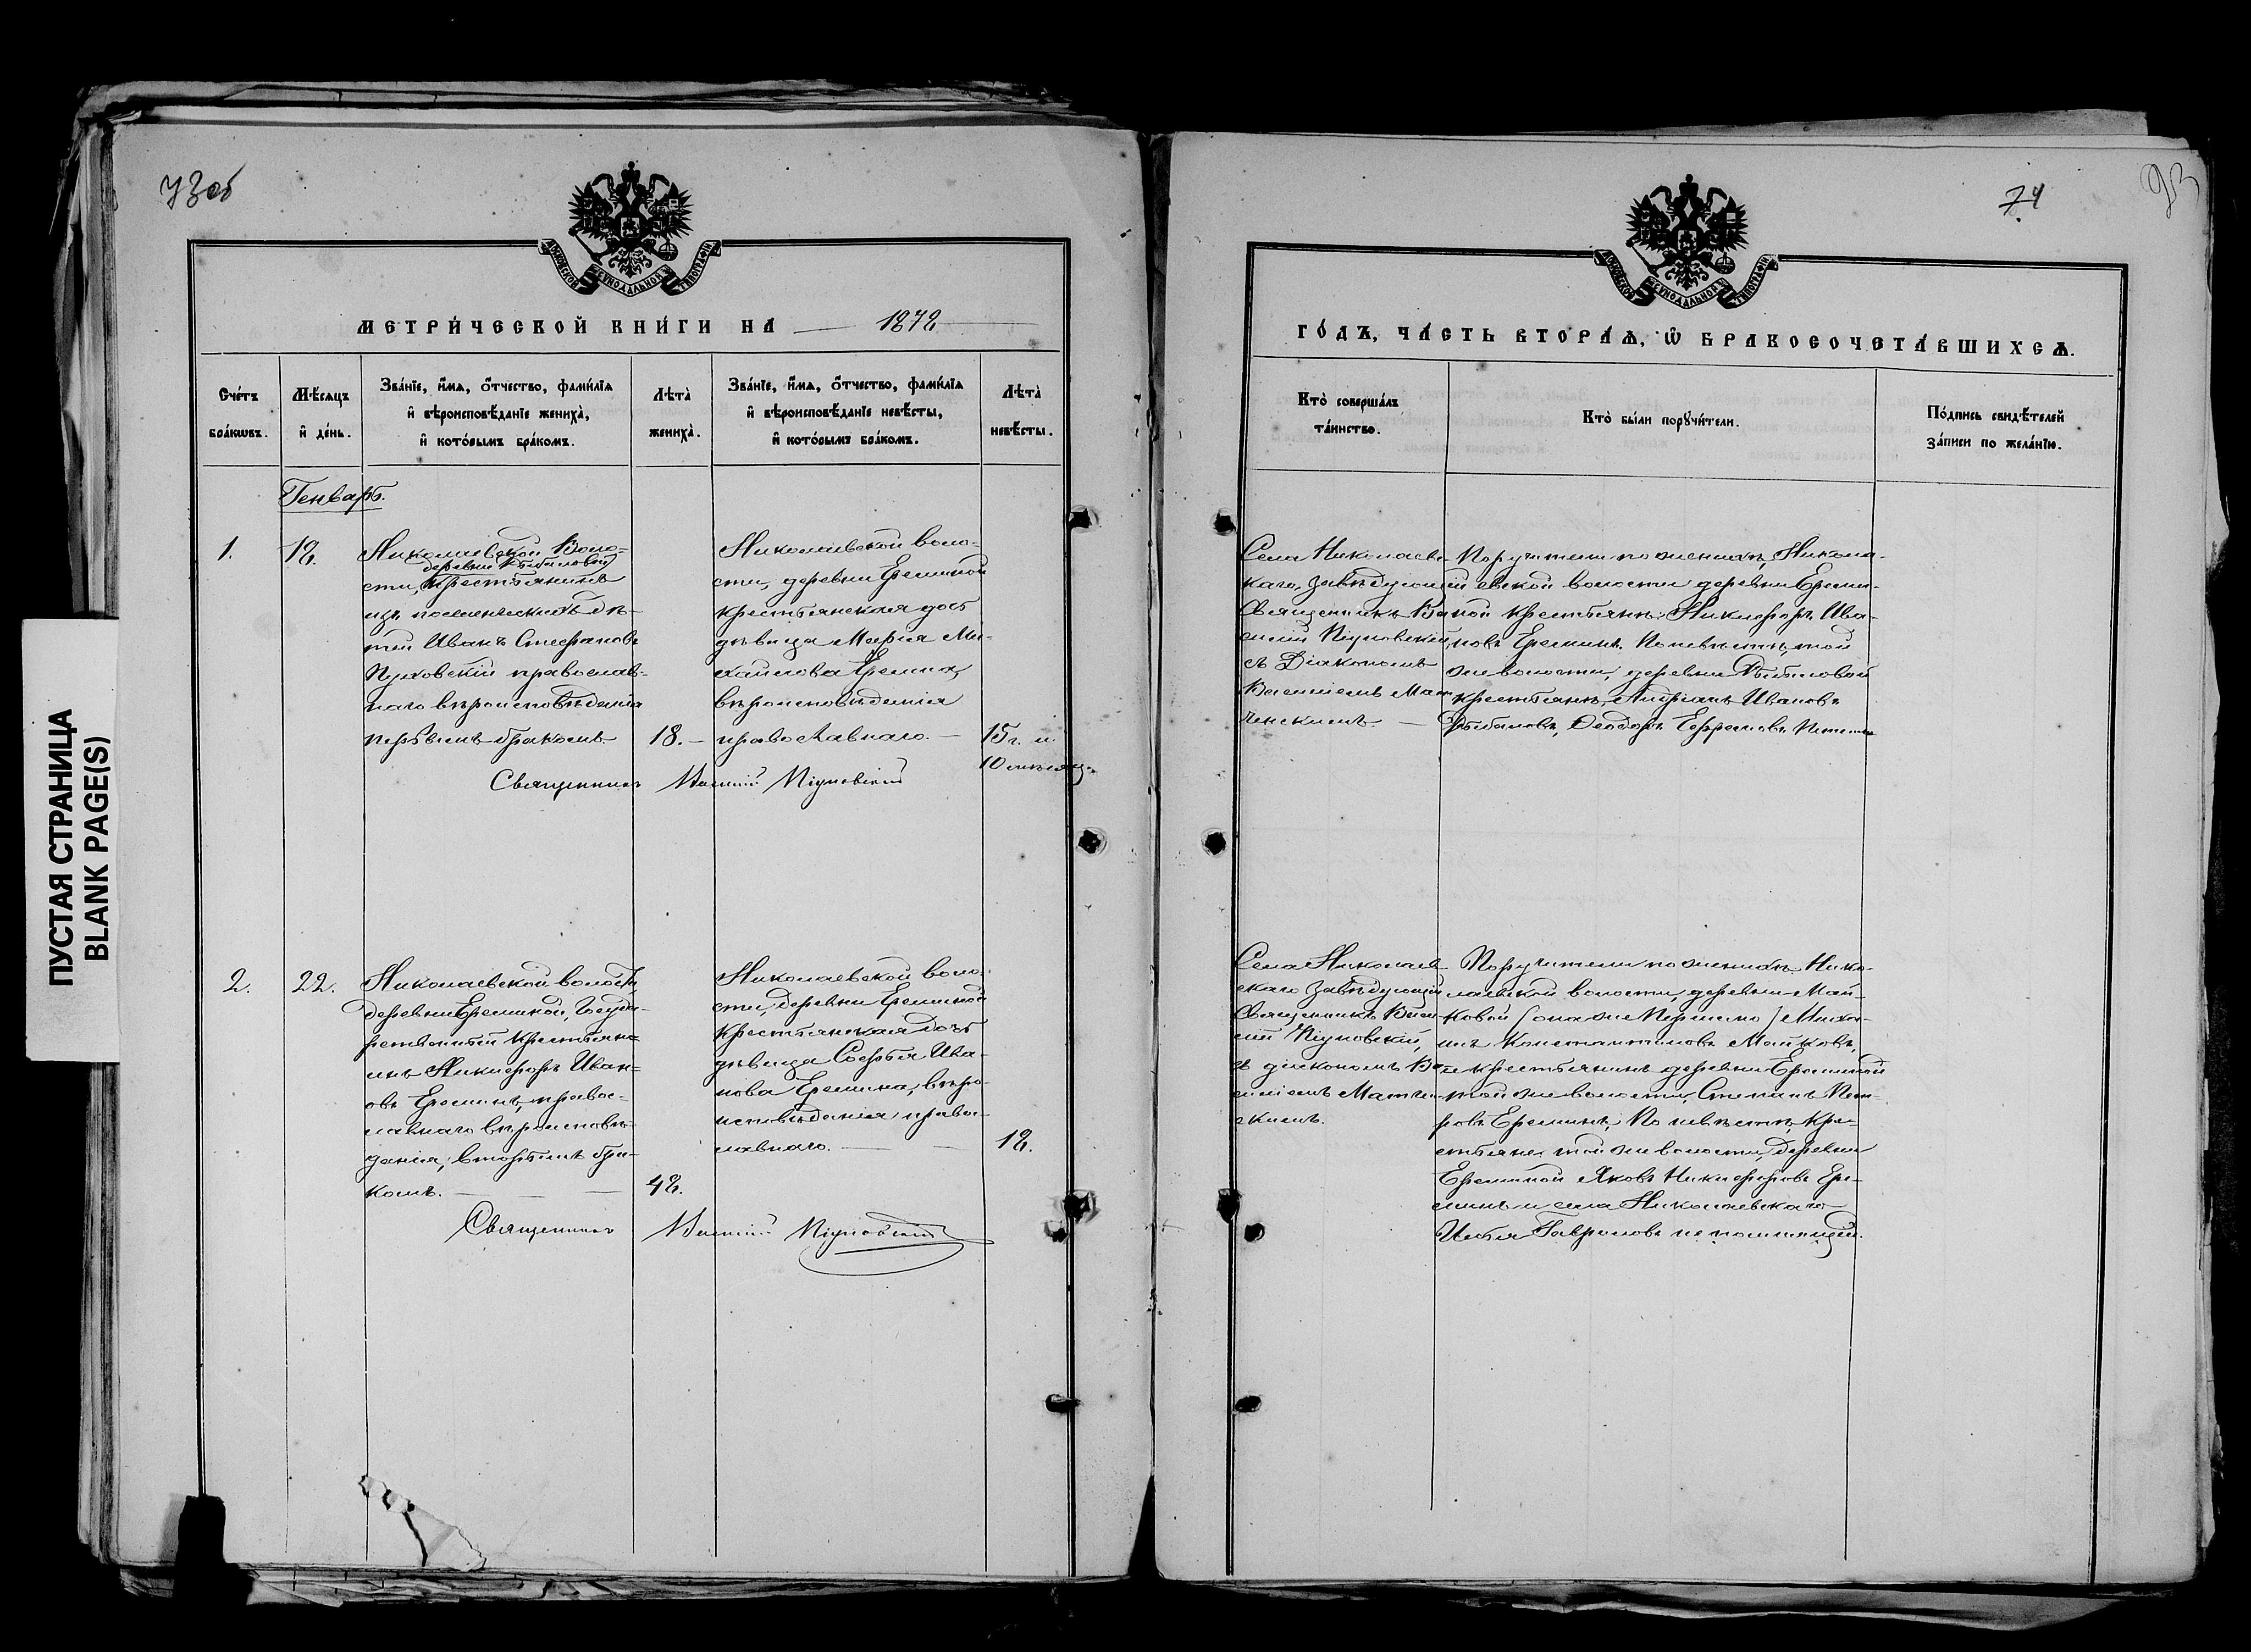 73об
МЕТРИ́ЧЕСКОЙ КНИ́ГИ НА 1872
Сче́тъ бра́кωвъ.
Мѣ́сяцъ и҆ де́нь.
Зва́нїе, и҆́мѧ, ѻ҆́тчество, фами́лїѧ и҆ вѣроисповѣ́данїе жениха̀, и҆ кото́рымъ бра́комъ.
Лѣта̀ жениха̀.
Зва́нїе, и҆́мѧ, ѻ҆́тчество, фами́лїѧ и҆ вѣроисповѣ́данїе невѣ́сты, и҆ кото́рымъ бра́комъ.
Лѣта̀ невѣ́сты.
Генварь.
1.
12.
Николаевской Воло-
деревни Рыбаловой
сти, крестьянинъ
изъ поселенческихъ дѣ-
тей Иванъ Стефановъ
Пуховскій православ-
наго вѣроисповѣданія
первымъ бракомъ.
18.
Николаевской воло-
сти, деревни Ереминой
крестьянская дочь
дѣвица Марія Ми-
хайлова Еремина,
вѣроисповѣданія
православнаго.
15 г. и
10 мѣсяц.
Священникъ Василій
2.
22.
Николаевской волости,
деревни Ереминой, Госуда-
рственный крестьяни-
инъ Никифоръ Иван-
овъ Ереминъ, правос-
лавнаго вѣроисповѣ-
данія, вторымъ бра-
комъ.
42.
Николаевской воло-
сти, деревни Ереминой
крестьянская дочь
дѣвица Софья Ива-
нова Еремина, вѣро-
исповѣданія право-
лавнаго.
18.
Священникъ Василій
74
93
ГО́ДЪ, ЧА́СТЬ ВТОРА́Ѧ, Ѽ БРАКОСОЧЕТА́ВШИХСѦ.
Кто̀ соверша́лъ та́инство.
Кто̀ бы́ли порꙋчи́тели.
По́дпись свидѣ́телей за́писи по жела́нїю.
Села Николаевс-
каго, завѣдующій
Священникъ Ва-
силій
съ Діакономъ
Василіемъ
Поручители по женихѣ, Никола-
евской волости деревни Ереми-
ной крестьянъ: Никифоръ Ива-
новъ Ереминъ. По невѣстѣ, той
же волости, деревни Рыбаловой
крестьянъ, Андріанъ Ивановъ
Рыбаловъ, Ѳеодоръ Ефремовъ
Села Николаев-
скаго завѣдующій
Священникъ Васи-
лій
съ діакономъ Ва-
силіемъ
Поручители по женихѣ Нико-
лаевской волости, деревни Май-
ковой Миха-
илъ Константиновъ Майковъ,
и крестьянинъ деревни Ереминой
той же волости, Степанъ Пет-
ровъ Ереминъ, По невѣстѣ, кре-
стьяне той же волости, деревни
Ереминой Яковъ Никифоровъ Ере-
минъ и села Николаевскаго
Илья Гавриловъ непомнящій.
ПУСТАЯ СТРАНИЦА
BLANK PAGE(S)